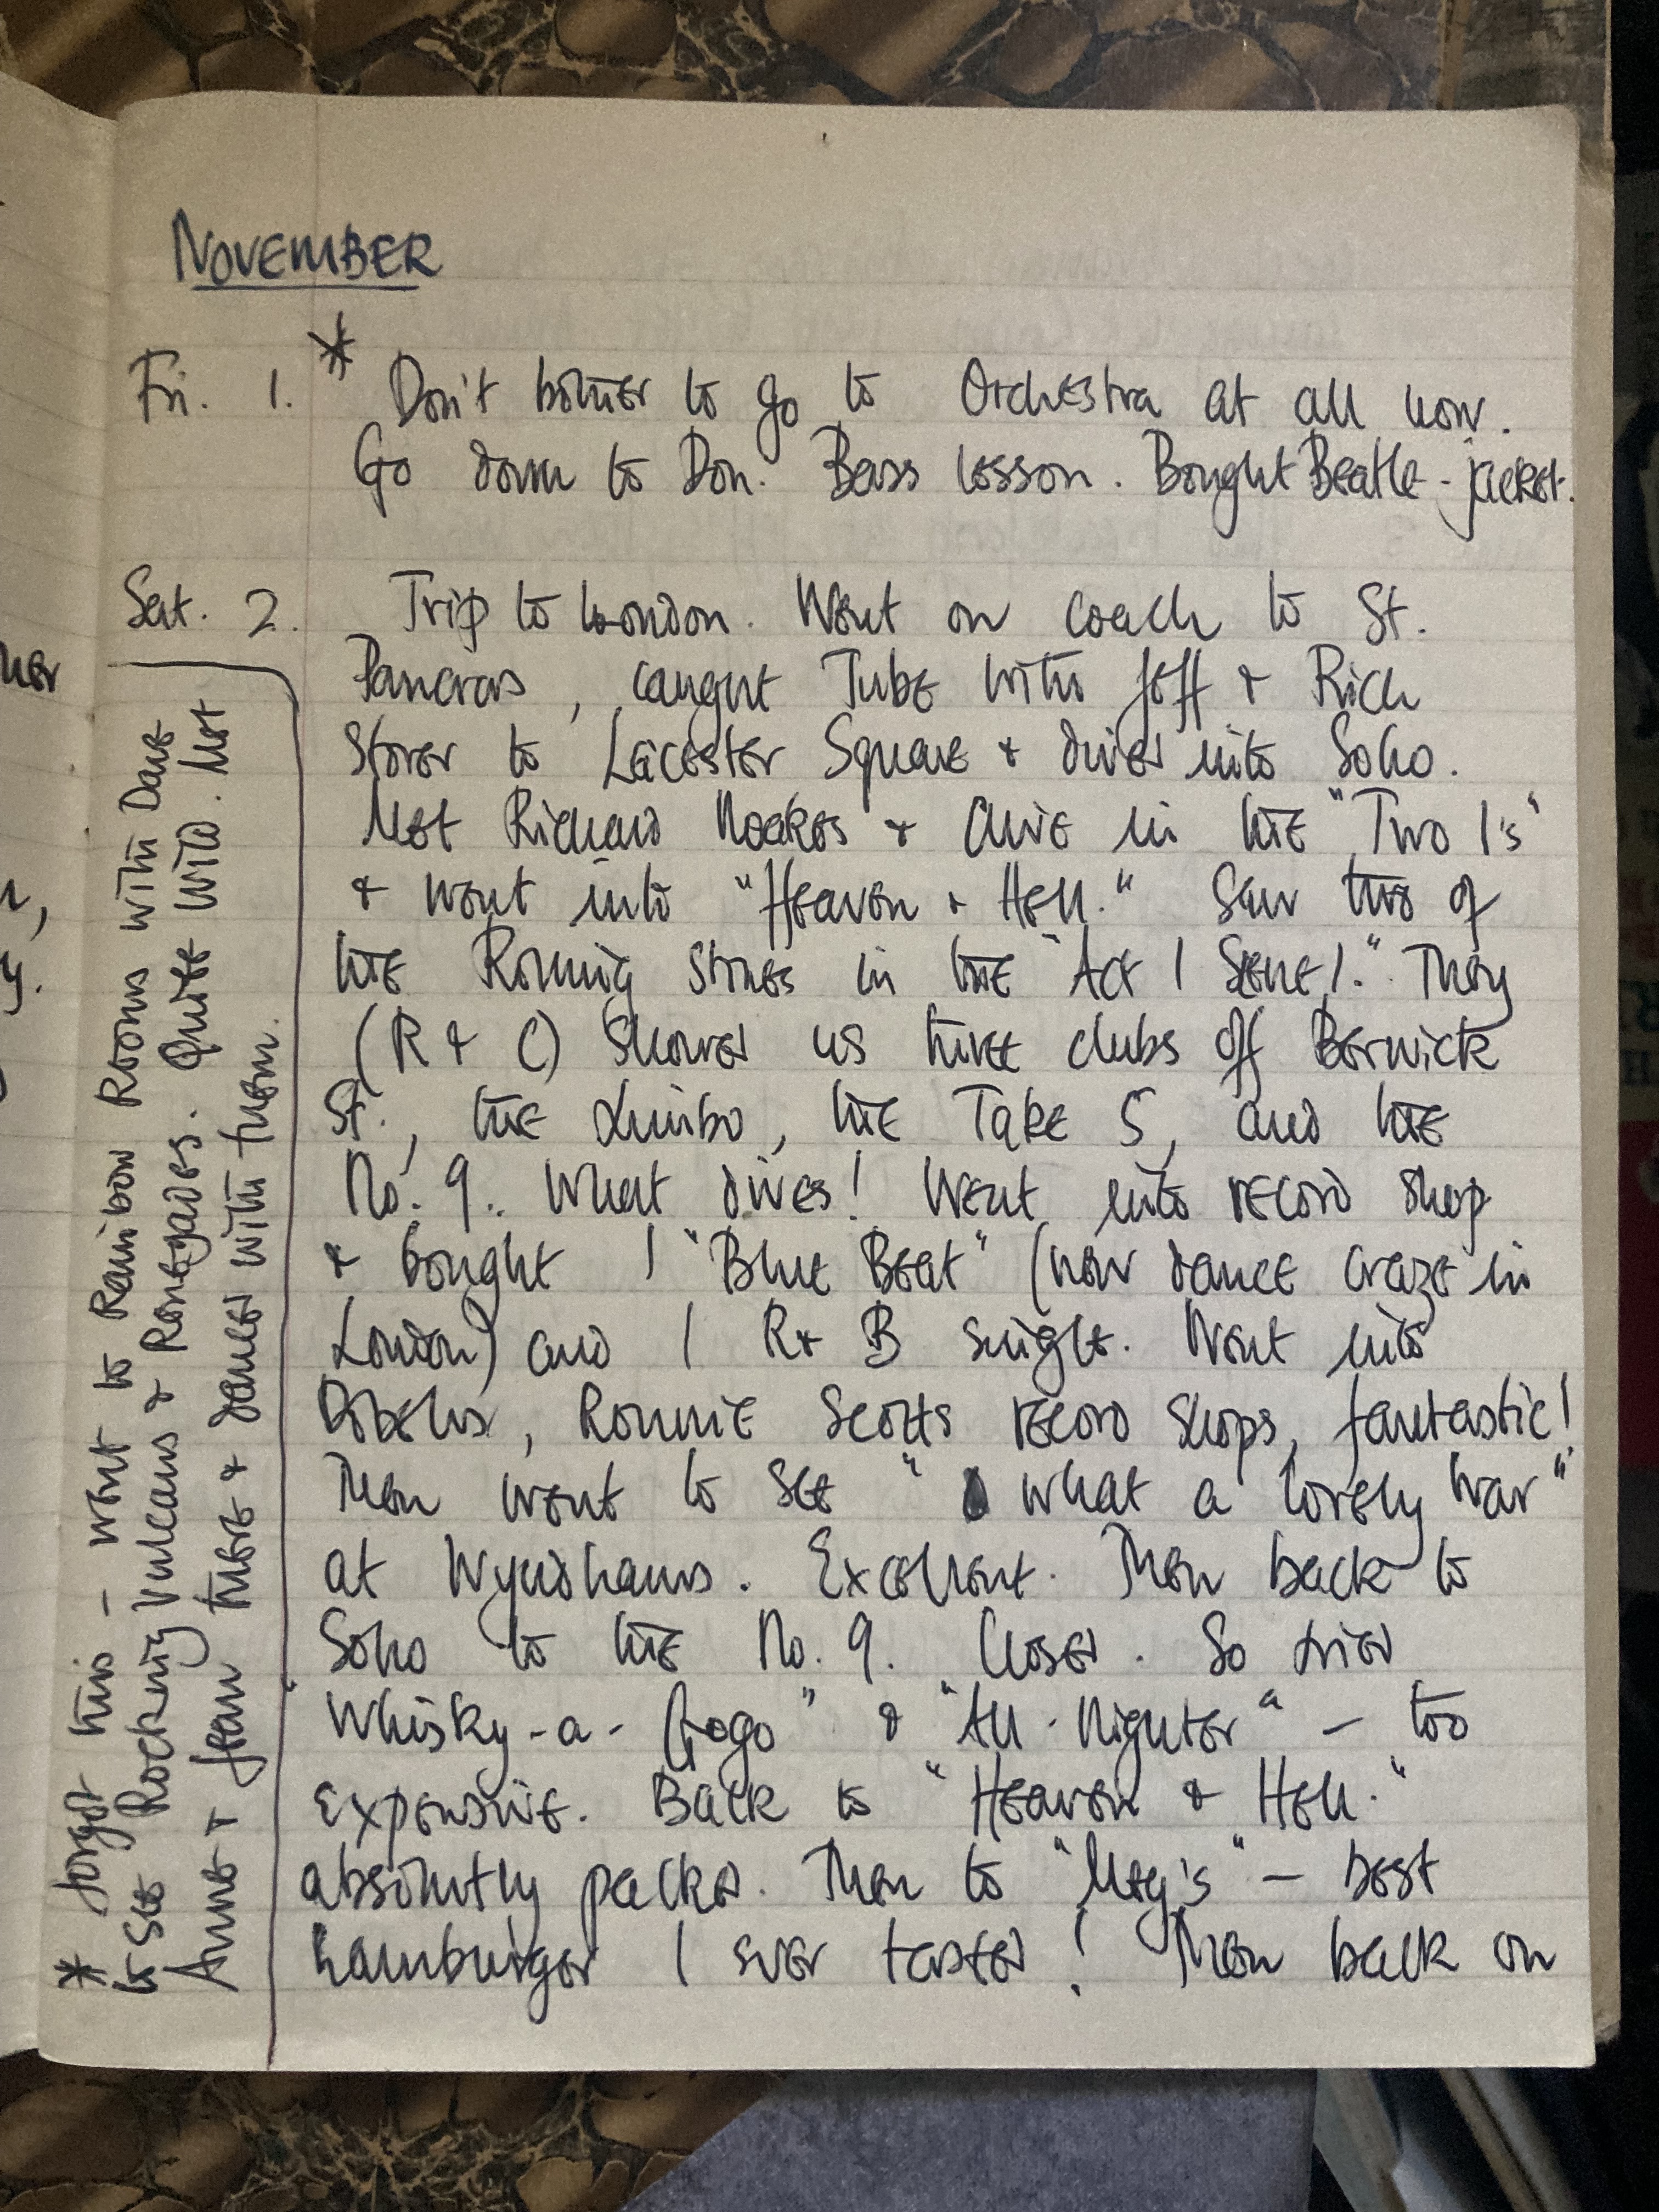 NOVEMBER
Fri. 1. * Don't bother to go to Orchestra at all now.
Go down to Don. Bass lesson. Bought Beatle-jacket.
Sat. 2. Trip to London. Went on coach to St.
Pancras, caught Tube with Jeff & Rich
Storer to Leicester Square & dived into Soho.
Met Richard Noakes & Clive in the "Two I's"
& went into "Heaven & Hell." Saw two of
the Rolling Stones in the "Act 1 Scene 1." They
(R & C) showed us three clubs off Berwick
St., the Limbo, the Take 5, and the
No. 9.. What dives! Went into record shop
& bought 1 "Blue Beat" (new dance craze in
London) and 1 R & B single. Went into
Dobells, Ronnie Scotts record shops, fantastic!
Then went to see " what a lovely war"
at Wyndhams. Excellent. Then back to
Soho to the No. 9. Closed. So tried
"Whisky-a-Gogo" & "All-Nighter" – too
expensive. Back to "Heaven & Hell."
absolutly packed. Then to "Meg's" – best
hamburger I ever tasted! Then back on
* forgot this – went to Rainbow Rooms with Dave
to see Rocking Vulcans & Renegades. Quite wild. Met
Anne & Jean there & danced with them.
her
y.